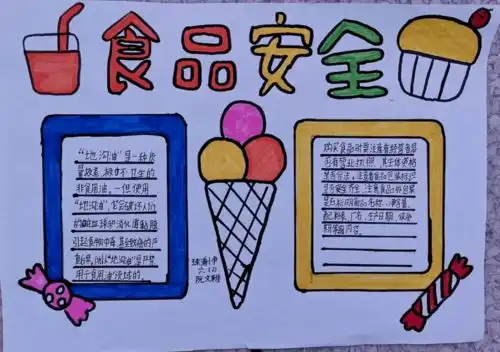 食品安全
"地沟油"是一种质
量极差、极不卫生的
非食用油。一但使用
"地沟油",它会破坏人们
的白血球和消化道黏膜
引起食物中毒,甚至致癌的严
重后果,所以"地沟油"是严禁
用于食用油领域的。
购买食品时要注意看经营者是
否有营业执照,其主体资格
是否合法。注意看食品包装标识
是否齐全,注意食品外包装
是否标明商品名称、
配料表、厂名、生产日期、保质
期等内容。
六
阮文